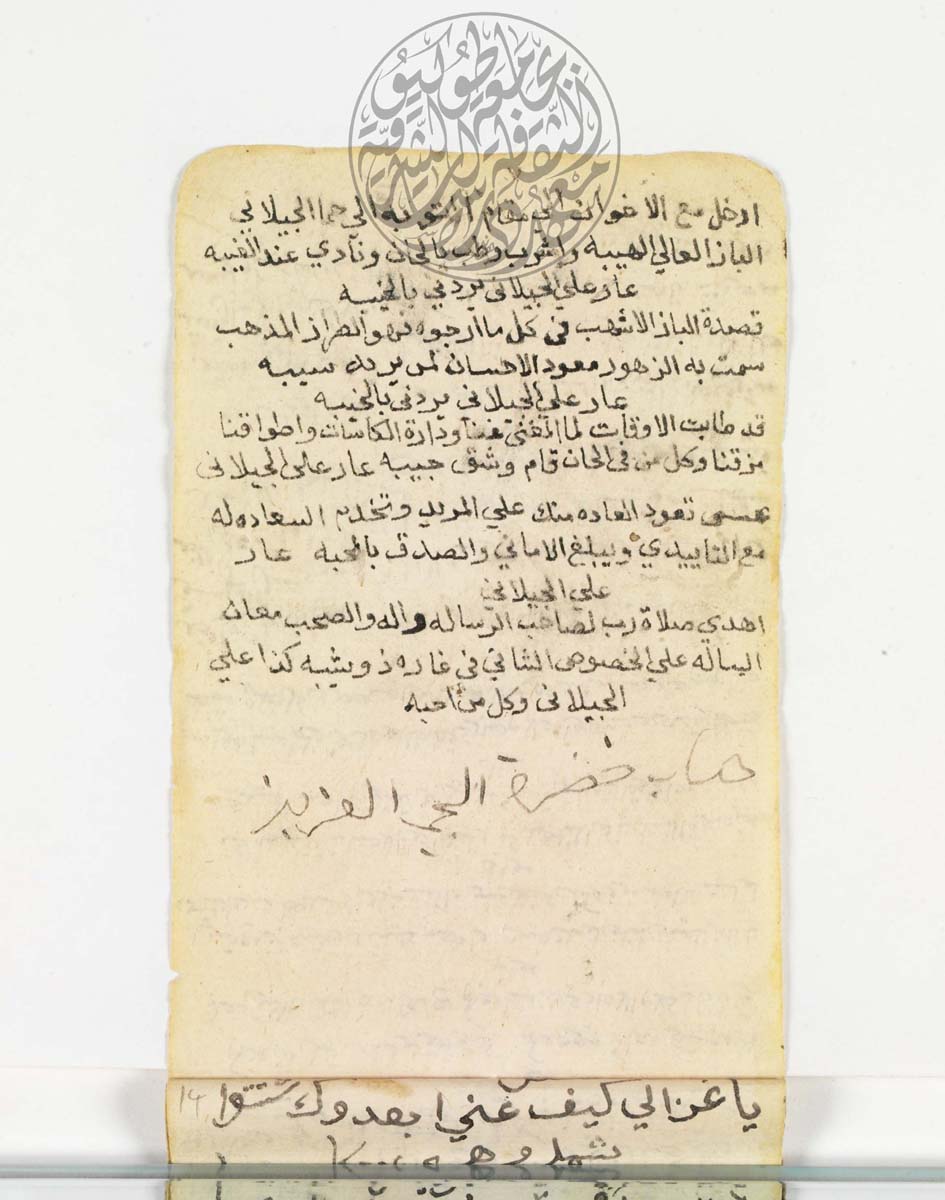 ادخل مع الاخوان الي مقام التوبه الي حما الجيلاني
الباز العالي الهيبه واشرب وطب يالحان ونادي عند الغيبه
عار علي الجيلاني يردني بالخيبه
قصدة الباز الاشهب في كل ما ارجوه فهو الطراز المذهب
سمت به الزهور معود الاحسان لمن يريد سيبه
عار علي الجيلاني يردني بالخيبه
قد طابت الاوقات لما ودارة الكاسات واطواقنا
مزقنا وكل من في الحان قام وشق جيبه عار علي الجيلاني
عسى تعود العاده منك علي المريد وتخدم السعاده له
مع التاييدي ويبلغ الاماني والصدق بالمحبه عار
علي الجيلاني
اهدي صلاة رب لصاحب الرساله واله والصحب معان
البساله علي الخصوص الثاني في غاره ذو شيبه كذا علي
الجيلاني وكل من احبه
حضرة العزيز
يا غزالي كيف عني ابعدوك شتتوا ١٤